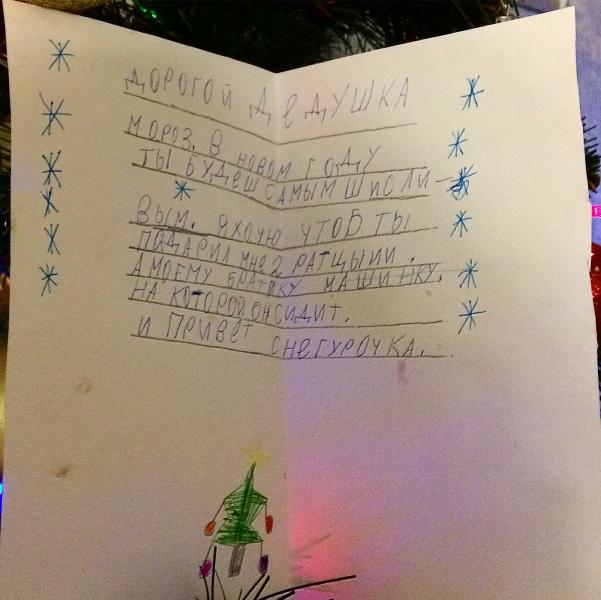 ДОРОГОЙ ДЕДУШКА
МОРОЗ. В НОВОМ ГОДУ
ТЫ БУДЕШ САМЫМ ШИСЛИ-
ВЫМ. Я ХОЧУ ЧТОБ ТЫ
ПОДАРИЛ МНЕ 2 РАТЦЫИИ.
А МОЕМУ БРАТИКУ МАШИНКУ.
НА КОТОРОЙ ОН СИДИТ.
И ПРИВЕТ СНЕГУРОЧКА.